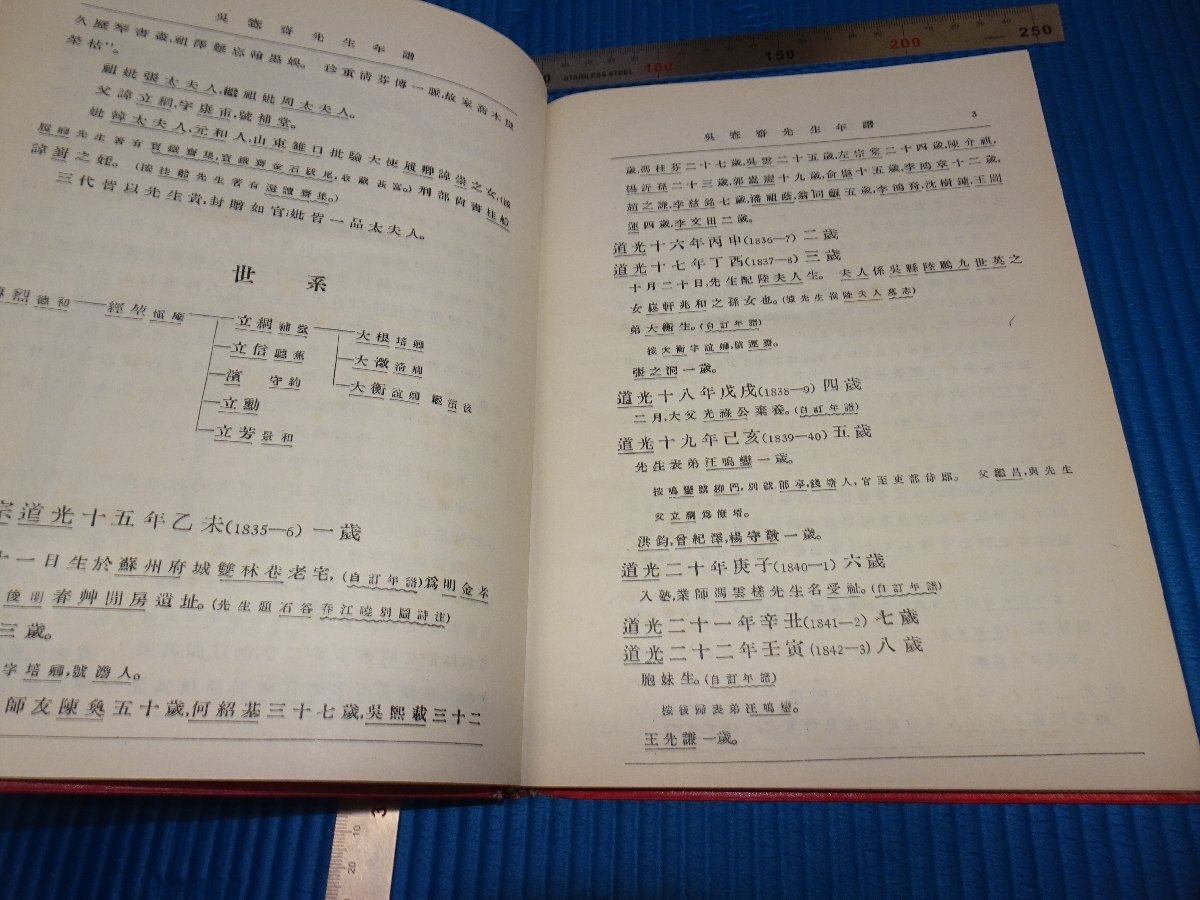 吳愙齋先生年譜
久歷琴書盡,祖澤難忘翰墨娛。 珍重清芬傳一脈,故家喬木總
榮枯"。
祖妣張太夫人,繼祖妣周太夫人。
父諱立綱,字康甫,號補堂。
妣韓太夫人,元和人,山東雒口批驗大使履卿諱崇之女,(按
履卿先生著有寶鐵齋集,寶鐵齋金石跋尾,收藏甚富。)刑部尚書桂舲
諱崶之姪。(按桂舲先生著有還讀齋集。)
三代皆以先生貴,封贈如官;妣皆一品太夫人。
世系
烈德初
經堃慎庵
立綱補堂
大根培卿
立信聽蕉
大澂清卿
濱 守約
大衡誼卿 嗣濱後
立勳
立芳景和
宗道光十五年乙未(1835—6)一歲
十一日生於蘇州府城雙林巷老宅,(自訂年譜)爲明金孝
俊明春艸閒房遺址。(先生題石谷春江曉別圖詩注)
三歲。
字培卿,號澹人。
師友陳奐五十歲,何紹基三十七歲,吳熙載三十二
吳愙齋先生年譜
3
歲,馮桂芬二十七歲,吳雲二十五歲,左宗棠二十四歲,陳介祺,
楊沂孫二十三歲,郭嵩燾十九歲,俞樾十五歲,李鴻章十二歲,
趙之謙,李慈銘七歲,潘祖蔭,翁同龢五歲,李鴻裔,沈樹鏞,王闓
運四歲,李文田二歲。
道光十六年丙申(1836—7)二歲
道光十七年丁酉(1837—8)三歲
十月二十日,先生配陸夫人生。 夫人係吳縣陸鵬九世英之
女,嵊軒兆和之孫女也。(據先生撰陸夫人墓志)
弟大衡生。(自訂年譜)
按大衡字誼卿,號運齋。
張之洞一歲。
道光十八年戊戌(1838—9)四歲
二月,大父光祿公棄養。(自訂年譜)
道光十九年己亥(1839—40)五歲
先生表弟汪鳴鑾一歲。
按鳴鑾號柳門,別號郋亭,錢塘人,官至吏部侍郎。 父繼昌,與先生
父立綱爲僚壻。
洪鈞,曾紀澤,楊守敬一歲。
道光二十年庚子(1840—1)六歲
入塾,業師馮雲槎先生名受祉。(自訂年譜)
道光二十一年辛丑(1841—2)七歲
道光二十二年壬寅(1842—3)八歲
胞妹生。(自訂年譜)
按後歸表弟汪鳴鑾。
王先謙一歲。
STAINLESS STEEL
100
150
200
250
10
20